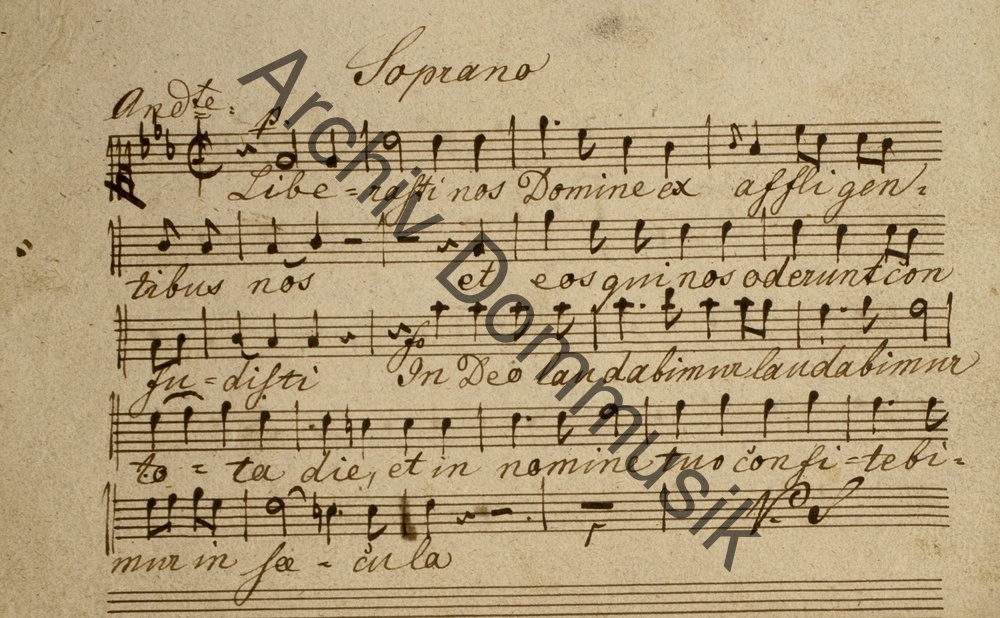 Soprano
Andte:
p.
Libe = rasti nos Domine ex affligen =
tibus nos et eos qui nos oderunt con
fo
fu = disti In Deo laudabimur laudabimur
to = ta die, et in nomine tuo confi = tebi =
mur in sæ = cula
Archiv Dommusik